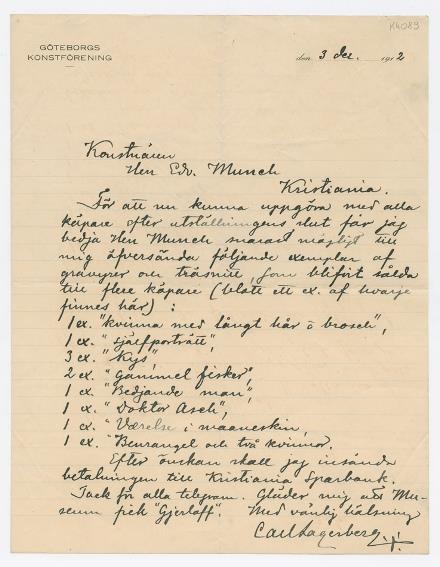 K4083
GÖTEBORGS
KONSTFÖRENING
den 3 dec. 1912
Konstnären
Herr Edv. Munch
Kristiania.
För att nu kunna uppgöra med alla
köpare efter utställningens slut får jag
bedja Herr Munch snarast möjligt till
mig öfversända följande exemplar af
gravyrer och träsnitt, som blifvit sålda
till flere köpare (blott ett ex. af hvarje
finnes här) :
1 ex. "kvinna med långt hår o brosch",
1 ex. "själfporträtt",
3 ex. "Kys",
2 ex. "Gammel fisker",
1 ex. "Bedjande man",
1 ex. "Doktor Asch",
1 ex. "Værelse i maaneskin,
1 ex. "Benrangel och två kvinnor.
Efter önskan skall jag insända
betalningen till Kristiania Sparbank.
Tack för alla telegram. Gläder mig att Mu-
seum fick "Gjerløff". Med vänlig hälsning
Carl Lagerberg